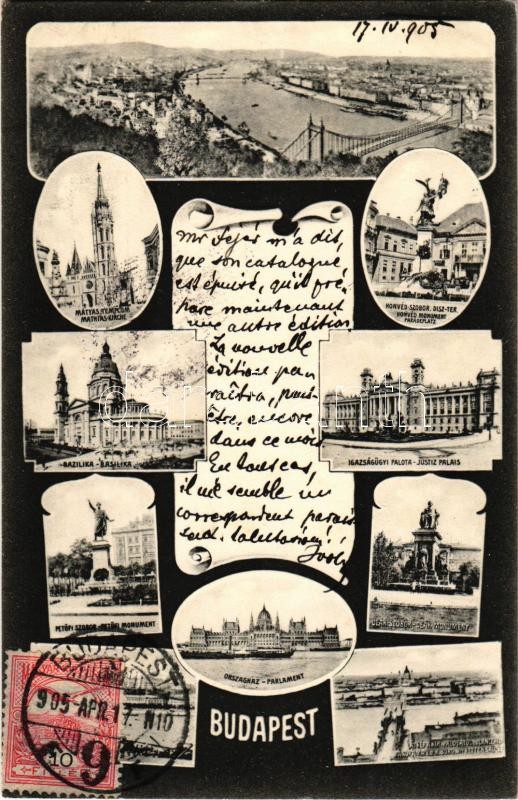 17. IV. 905
MÁTYÁS TEMPLOM
MATHIAS-KIRCHE
HONVÉD-SZOBOR. DISZ-TÉR.
HONVÉD MONUMENT
PARADEPLATZ
Mr Fejér m'a dit,
que son catalogue
est épuisé, qu'il pré-
pare maintenant
une autre édition
La nouvelle
édition pa-
raîtra, peut-
être, encore
dans ce mois
En tous cas,
il me semble un
correspondent
send.
BAZILIKA - BASILIKA
IGAZSÁGÜGYI PALOTA - JUSTIZ PALAIS
PETŐFI SZOBOR - PETŐFI MONUMENT
DEÁK-SZOBOR - DEÁK MONUMENT
ORSZÁGHÁZ - PARLAMENT
BUDAPEST
BUDAPEST
905 APR 17 N10
10
FILLÉR